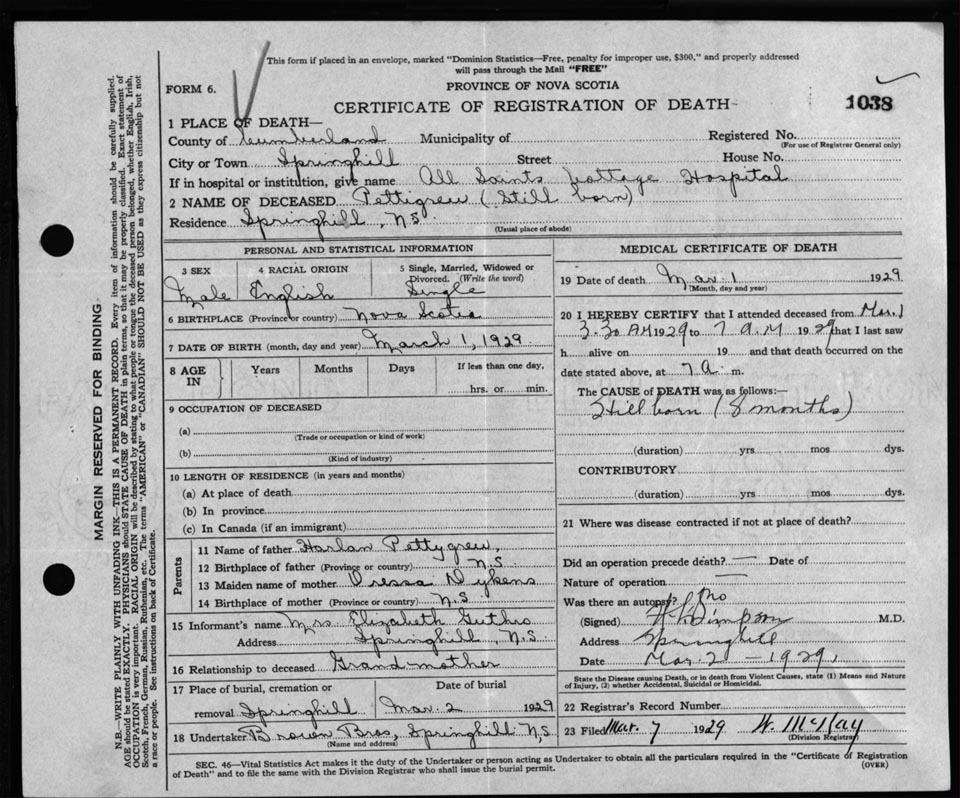 This form if placed in an envelope, marked "Dominion Statistics—Free, penalty for improper use, $300," and properly addressed
will pass through the Mail "FREE"
FORM 6.
PROVINCE OF NOVA SCOTIA
CERTIFICATE OF REGISTRATION OF DEATH
1038
1 PLACE OF DEATH—
County of Cumberland Municipality of Registered No.
(For use of Registrar General only)
City or Town Springhill Street House No.
If in hospital or institution, give name All Saints Cottage Hospital
2 NAME OF DECEASED Pettigrew (Still born)
Residence Springhill, N.S.
(Usual place of abode)
PERSONAL AND STATISTICAL INFORMATION
3 SEX 4 RACIAL ORIGIN 5 Single, Married, Widowed or
Divorced. (Write the word)
Male English Single
6 BIRTHPLACE (Province or country) Nova Scotia
7 DATE OF BIRTH (month, day and year) March 1, 1929
8 AGE IN Years Months Days If less than one day,
hrs. or min.
9 OCCUPATION OF DECEASED
(a)
(Trade or occupation or kind of work)
(b)
(Kind of industry)
10 LENGTH OF RESIDENCE (in years and months)
(a) At place of death
(b) In province
(c) In Canada (if an immigrant)
Parents
11 Name of father Harlan Pettygrew,
12 Birthplace of father (Province or country) N.S.
13 Maiden name of mother Dykens
14 Birthplace of mother (Province or country) N.S
15 Informant's name Mrs. Elizabeth
Address Springhill, N.S.
16 Relationship to deceased Grandmother
17 Place of burial, cremation or Date of burial
removal Springhill Mar. 2 1929
18 Undertaker Brown Bros, Springhill N,S
(Name and address)
MEDICAL CERTIFICATE OF DEATH
19 Date of death Mar. 1 1929
(Month, day and year)
20 I HEREBY CERTIFY that I attended deceased from Mar. 1
3.30 AM 1929 to 7 A.M 1929 that I last saw
h alive on 19 and that death occurred on the
date stated above, at 7 a. m.
The CAUSE of DEATH was as follows:—
Still born (8 months)
(duration) yrs mos dys.
CONTRIBUTORY
(duration) yrs mos dys.
21 Where was disease contracted if not at place of death?
Did an operation precede death? — Date of
Nature of operation —
Was there an autopsy? No
(Signed) Simpson M.D.
Address Springhill
Date Mar. 2 - 1929,
State the Disease causing Death, or in death from Violent Causes, state (1) Means and Nature
of Injury, (2) whether Accidental, Suicidal or Homicidal.
22 Registrar's Record Number
23 Filed Mar. 7 1929 W. McKay
(Division Registrar)
SEC. 46—Vital Statistics Act makes it the duty of the Undertaker or person acting as Undertaker to obtain all the particulars required in the "Certificate of Registration
of Death" and to file the same with the Division Registrar who shall issue the burial permit.
(OVER)
MARGIN RESERVED FOR BINDING
N.B.—WRITE PLAINLY WITH UNFADING INK—THIS IS A PERMANENT RECORD. Every item of information should be carefully supplied.
AGE should be stated EXACTLY. PHYSICIANS should STATE CAUSE OF DEATH in plain terms, so that it may be properly classified. Exact statement of
OCCUPATION is very important. RACIAL ORIGIN will be described by stating to what people or tongue the deceased person belonged, whether English, Irish,
Scotch, French, German, Russian, Ruthenian, etc. The terms "AMERICAN" or "CANADIAN" SHOULD NOT BE USED as they express citizenship but not
a race or people. See instructions on back of Certificate.